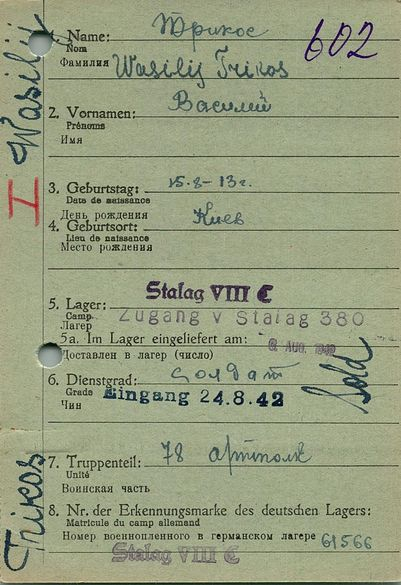 Wasilij
I
Trikos
602
1. Name:
Nom
Фамилия
Трикос
Wasilij Trikos
2. Vornamen:
Prénoms
Имя
Василий
3. Geburtstag:
Date de naissance
День рождения
15.8-13г.
4. Geburtsort:
Lieu de naissance
Место рождения
Киев
5. Lager:
Camp
Лагерь
Stalag VIII C
Zugang v Stalag 380
5a. Im Lager eingeliefert am:
Доставлен в лагерь (число)
AUG. 1942
6. Dienstgrad:
Grade
Чин
солдат
Sold
Eingang 24.8.42
7. Truppenteil:
Unité
Воинская часть
78 артполк
8. Nr. der Erkennungsmarke des deutschen Lagers:
Matricule du camp allemand
Номер военнопленного в германском лагере 61566
Stalag VIII C